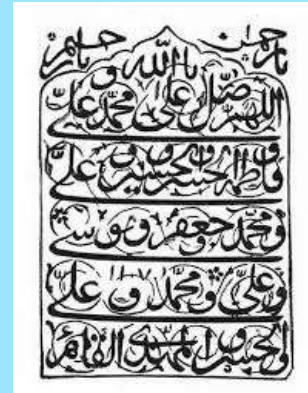 يا رحمن يا الله و يا رحيم
اللهم صل على محمد و علي
و فاطمة و الحسن و الحسين و علي
و محمد و جعفر و موسى
و علي و محمد و علي
و الحسن و المهدي القائم